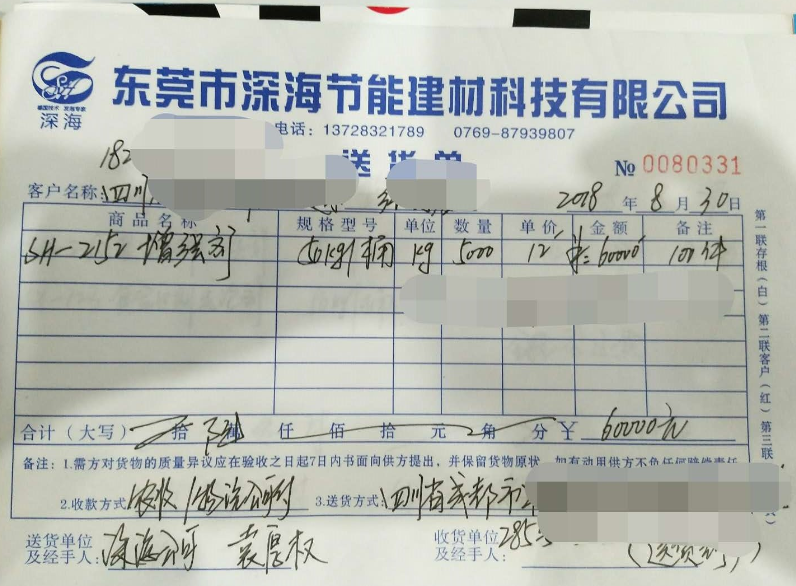 深海
东莞市深海节能建材科技有限公司
电话：13728321789 0769-87939807
送货单
№ 0080331
182
客户名称：四川
2018 年 8 月 30 日
商品名称 规格型号 单位 数量 单价 金额 备注
SH-2152 增强剂 50kg/桶 kg 5000 12 60000 100件
合计（大写） 拾 陆 万 仟 佰 拾 元 角 分 ￥ 60000元
备注：1.需方对货物的质量异议应在验收之日起7日内书面向供方提出，并保留货物原状，如有动用供方不负任何赔偿责任
2.收款方式 3.送货方式：四川省成都市
送货单位及经手人：深海公司 袁厚权
收货单位及经手人：285
第一联存根（白）第二联客户（红）第三联